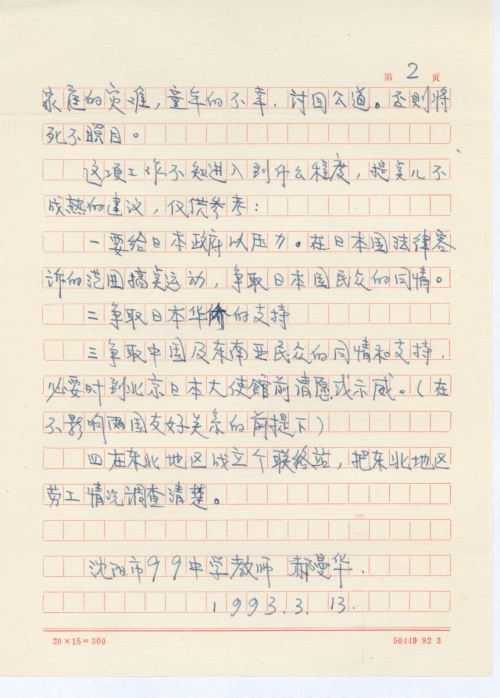 第 2 页
家庭的灾难，童年的不幸，讨回公道。否则将
死不瞑目。
这项工作不知进入到什么程度，提点儿不
成熟的建议，仅供参考：
一要给日本政府以压力。在日本国法律容
诉的范围搞点运动，争取日本国民众的同情。
二争取日本华侨的支持
三争取中国及东南亚民众的同情和支持，
必要时到北京日本大使館前请愿或示威。（在
不影响两国友好关系的前提下）
四在东北地区成立个联络站，把东北地区
劳工情况调查清楚。
沈阳市99中学教师 郝曼华.
1993.3.13.
20×15=300
50449 92 3